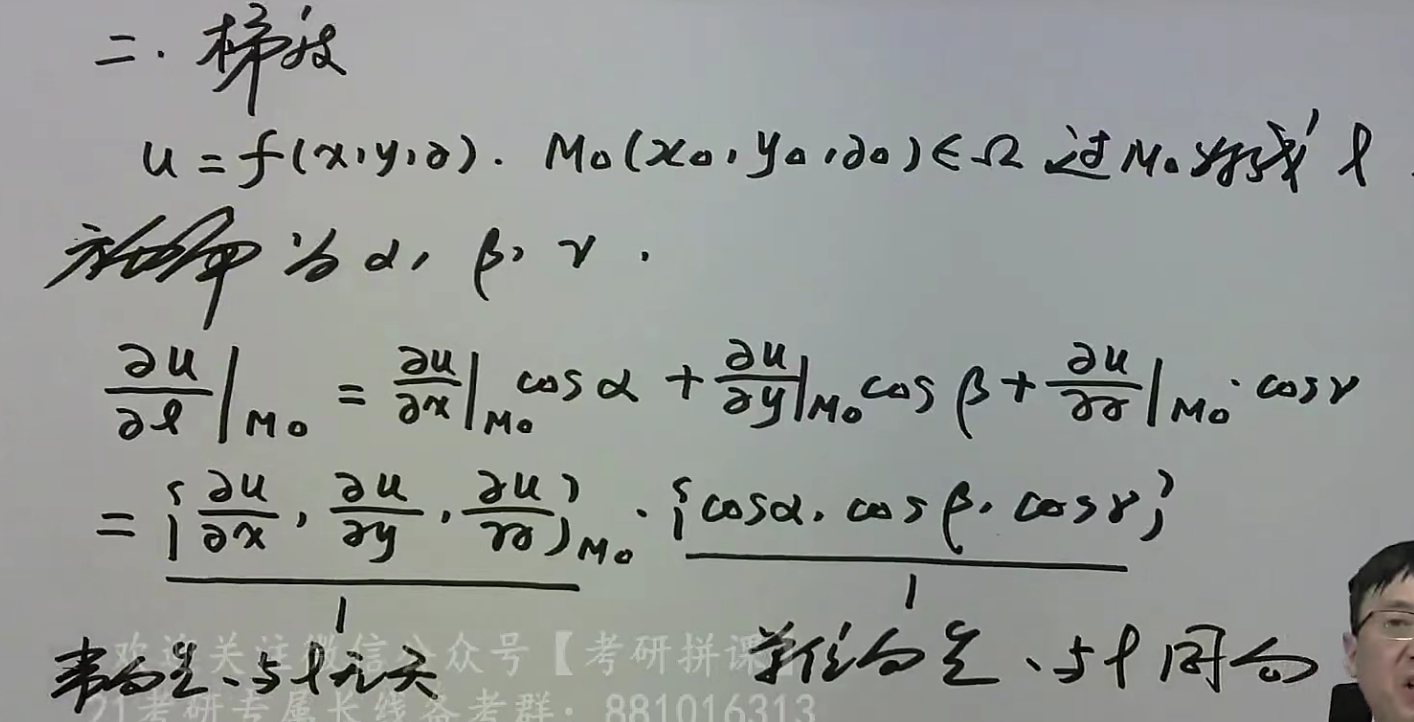 二. 梯度
u = f(x, y, z). M₀(x₀, y₀, z₀) ∈ Ω 过 M₀ 射线 l.
方向角 为 α, β, γ.
∂u/∂l |M₀ = ∂u/∂x |M₀ cos α + ∂u/∂y |M₀ cos β + ∂u/∂z |M₀ · cos γ
= {∂u/∂x, ∂u/∂y, ∂u/∂z}M₀ · {cos α, cos β, cos γ}
常向量、与 l 无关 单位向量、与 l 同向
欢迎关注微信公众号【考研拼课】
21考研专属长线备考群: 881016313